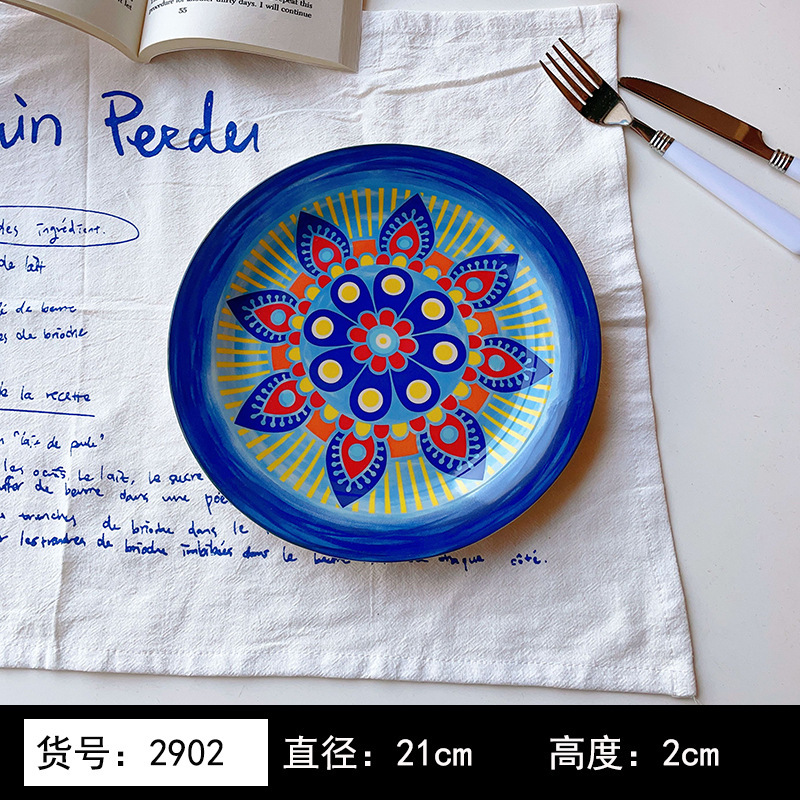 procedure for another thirty days. I will continue
55
Perdu
des ingrédient.
de lait
de beurre
de brioche
de la recette
"lait de poule"
les oeufs, le lait, le sucre
de beurre dans une
tranches de brioche dans le
de brioche imbibées dans le chaque côté.
货号：2902 直径：21cm 高度：2cm